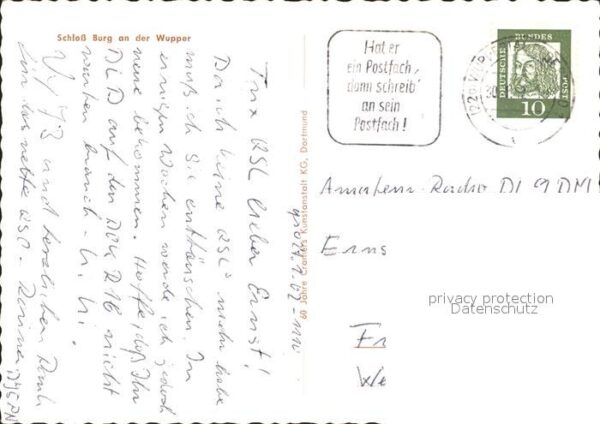 Schloß Burg an der Wupper
Tnx QSL lieber Ernst!
Da ich keine QSL's mehr habe
muß ich Sie enttäuschen. In
einigen Wochen werde ich jedoch
neue bekommen. Hoffe, daß Ihr
DLD auf den DOK R16 nicht
warten brauch - hi hi.
Vy 73 und herzlichen Dank
für das nette QSL -
60 Jahre Cramers Kunstanstalt KG, Dortmund
Hat er
ein Postfach,
dann schreib'
an sein
Postfach!
DEUTSCHE BUNDESPOST
10
Amateur-Radio DL 9 DM
Erns
privacy protection
Datenschutz
Fr
We